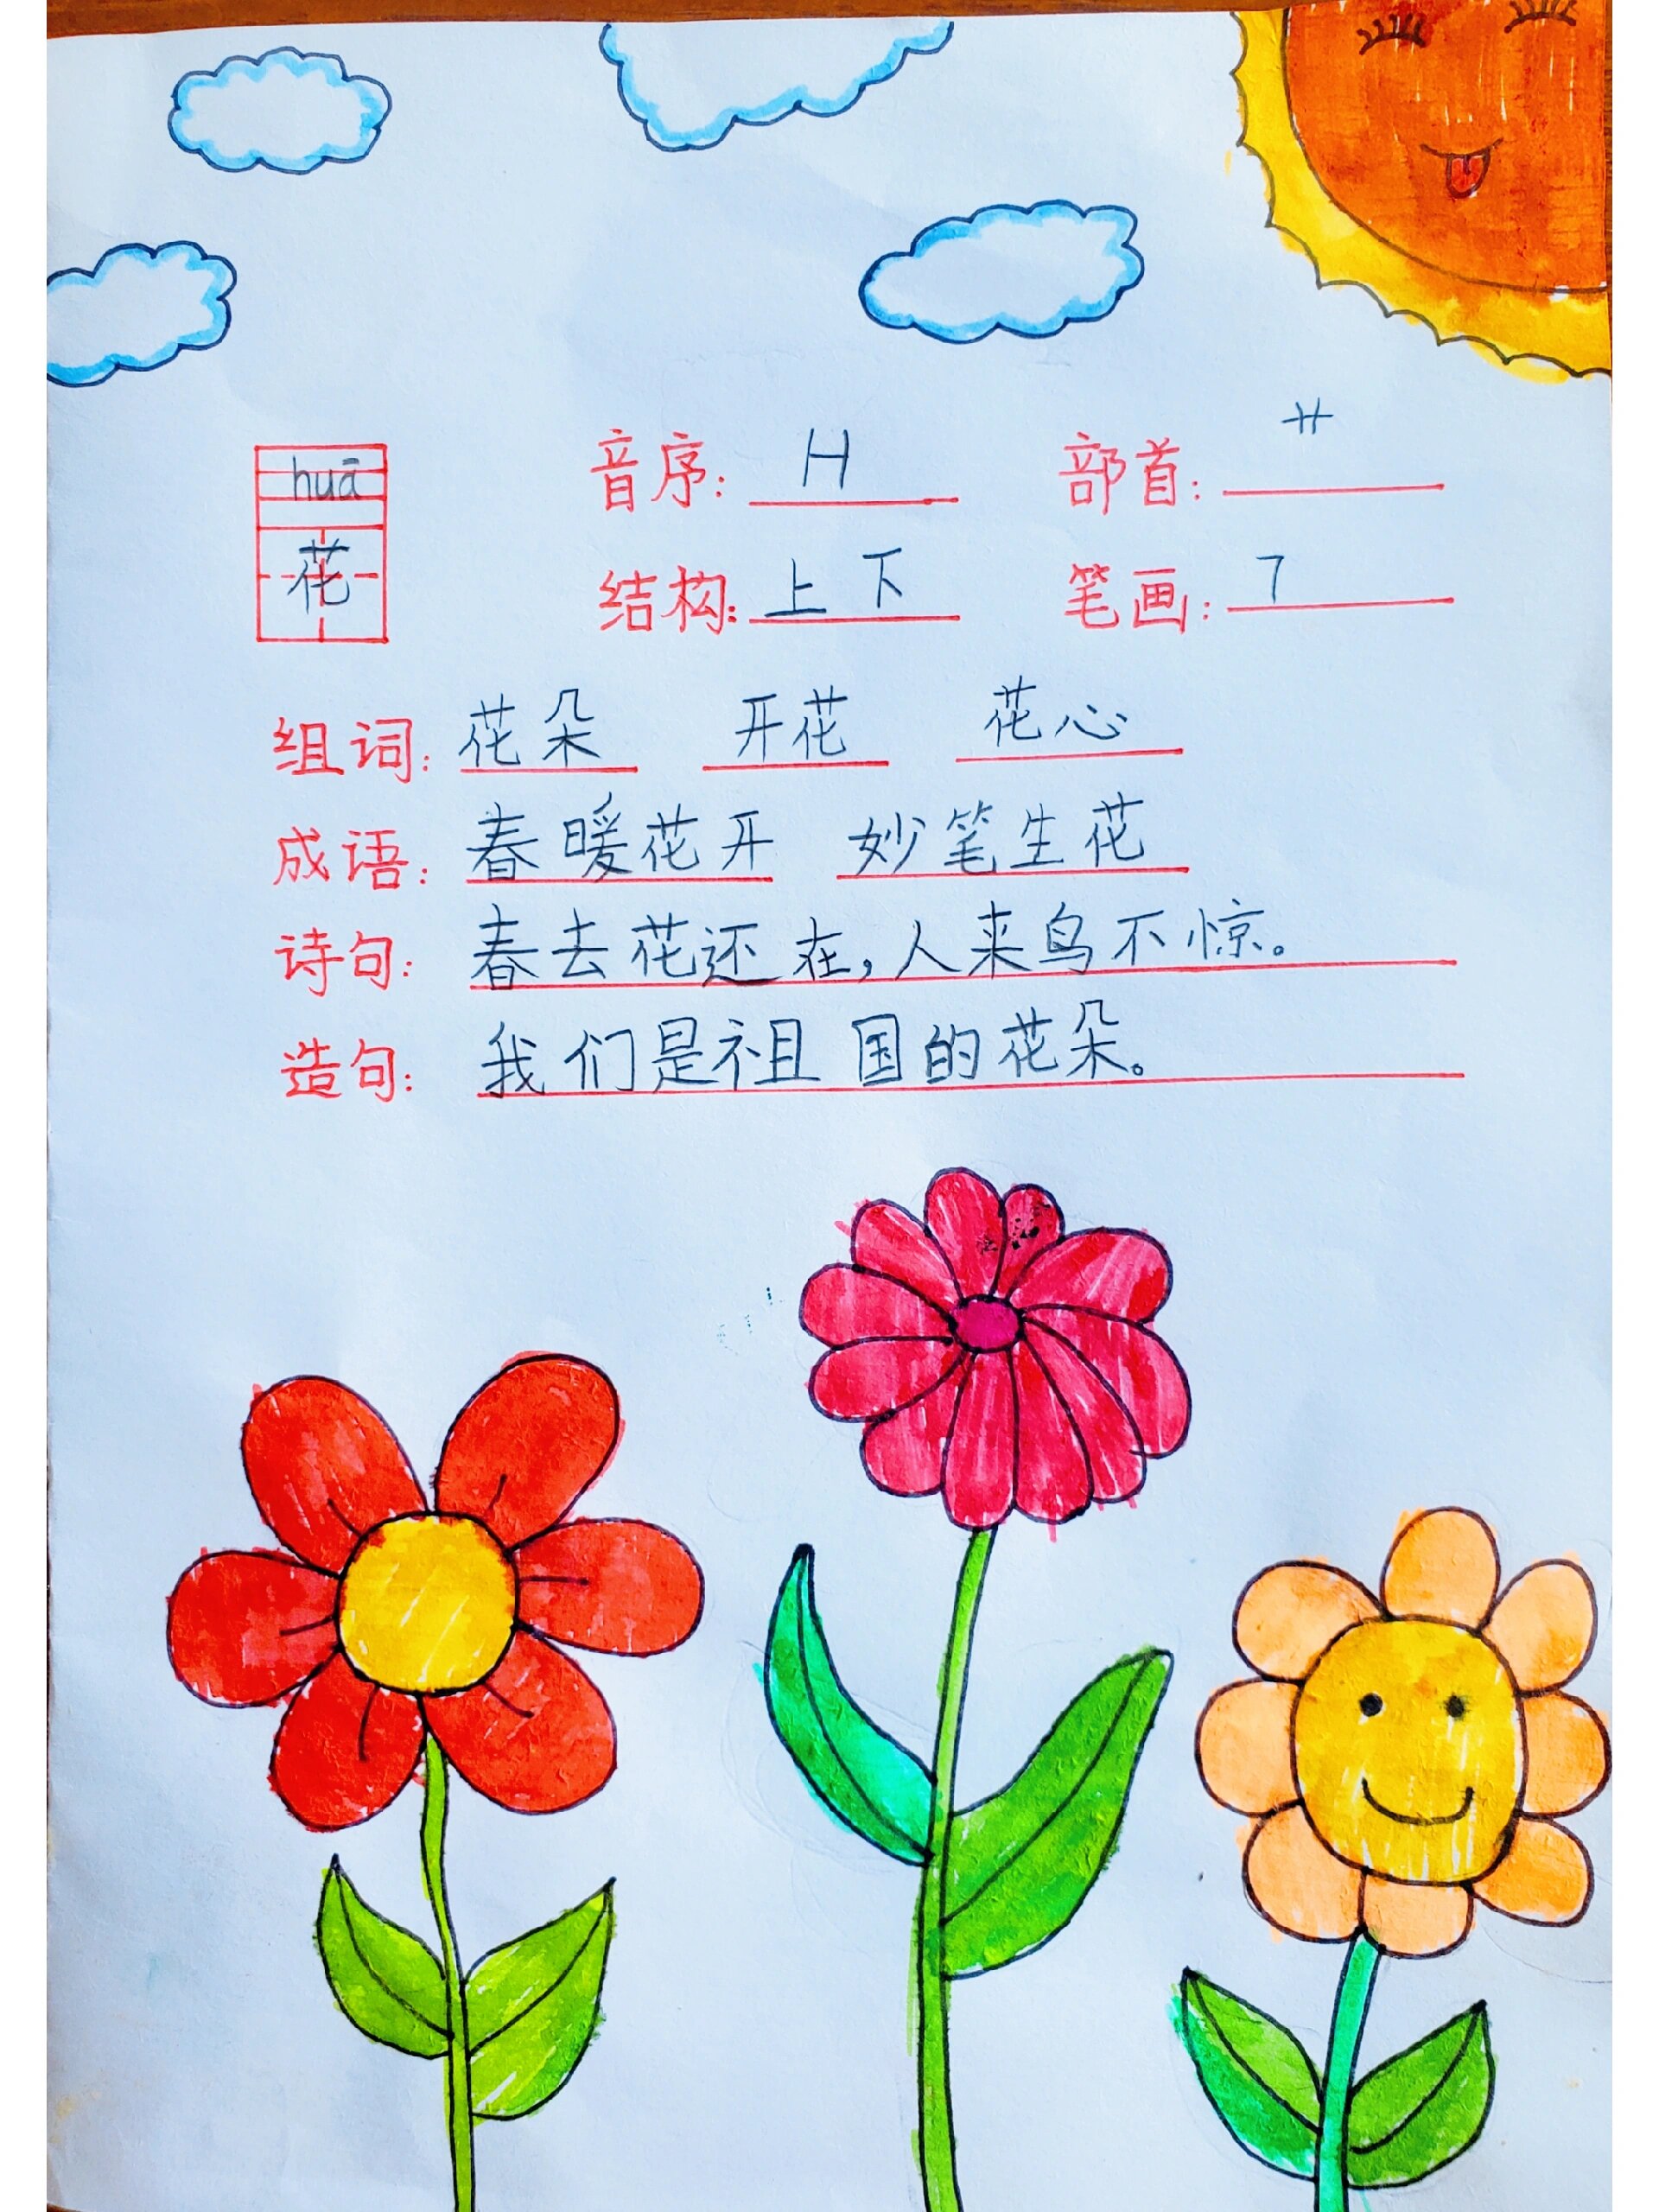 huā 音序: H 部首: 艹
花 结构: 上下 笔画: 7
组词: 花朵 开花 花心
成语: 春暖花开 妙笔生花
诗句: 春去花还在,人来鸟不惊。
造句: 我们是祖国的花朵。